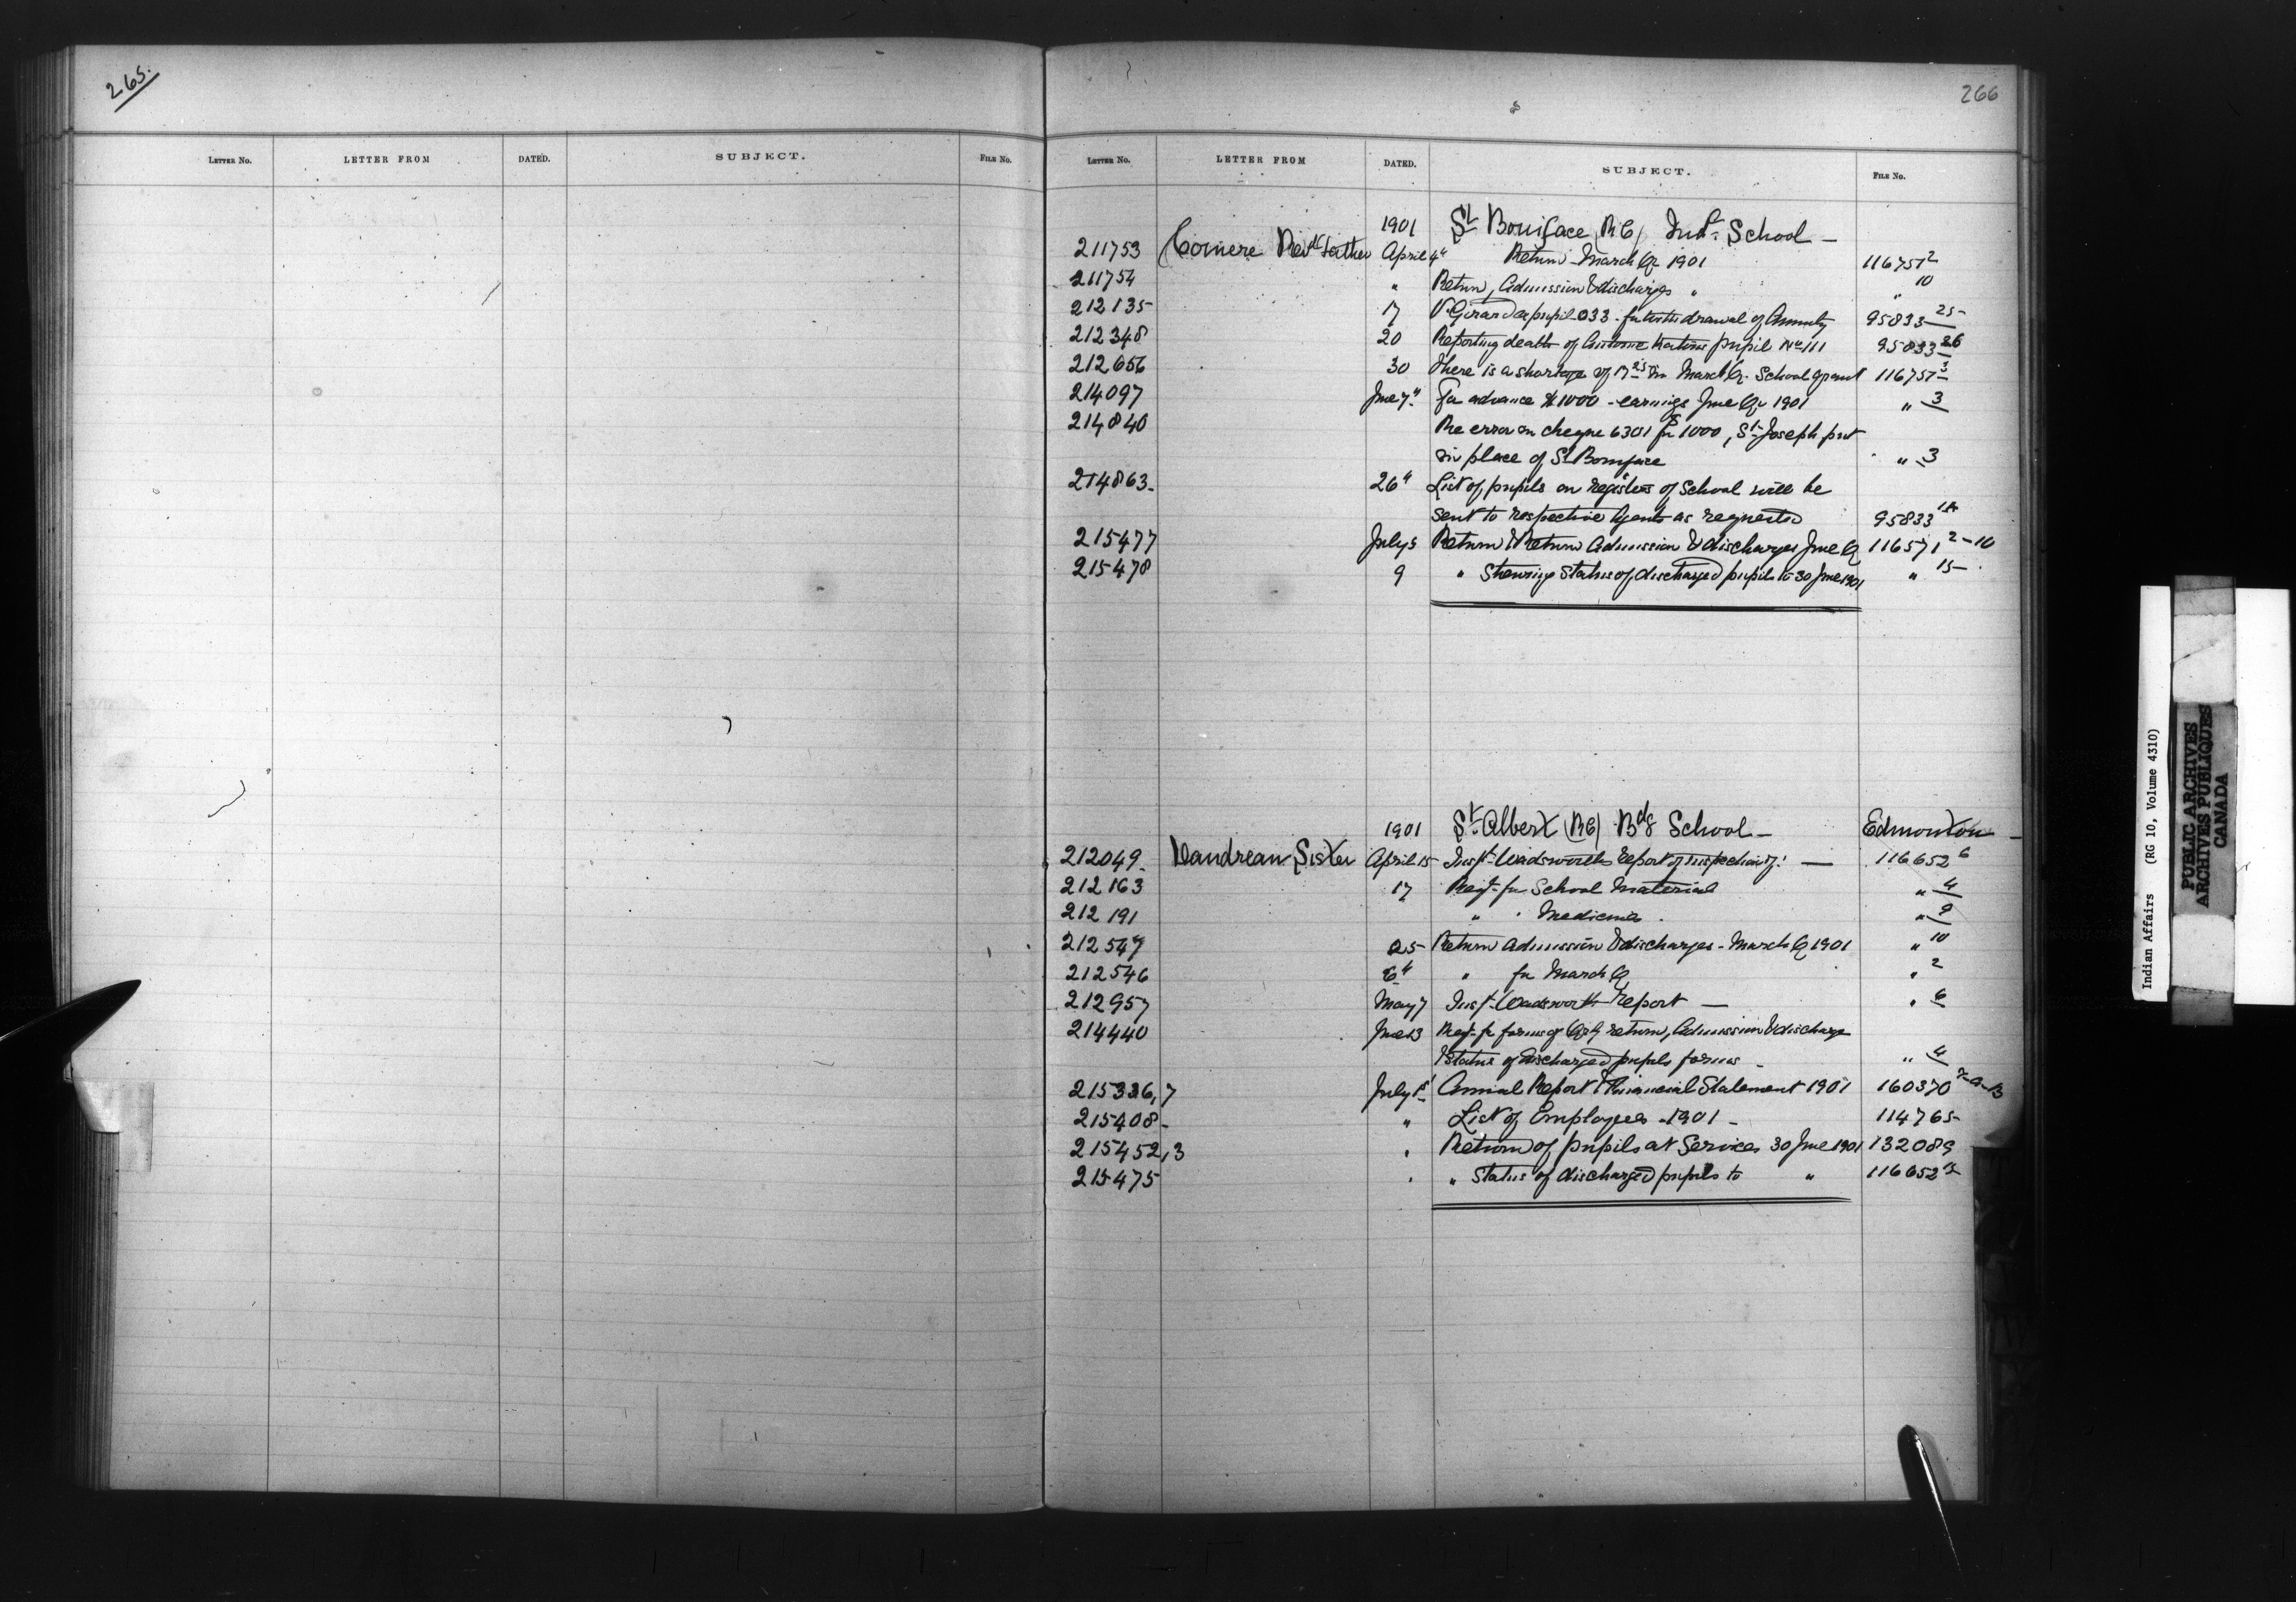 265.
LETTER NO. LETTER FROM DATED. SUBJECT. FILE NO.
266
LETTER NO. LETTER FROM DATED. SUBJECT. FILE NO.
1901 St Boniface (RC) Indl School —
211753 Comere Revd Father April 4" Return March Qr 1901 116751 2
211754 " Return, Admission & discharges " " 10
212135 17 V. Girard expupil 033 - for withdrawal of Annuity 95833 25
212348 20 Reporting death of pupil No 111 95833 26
212656 30 there is a shortage of in March Qr School grant 116751 3
214097 June 7" For advance $1000 - earnings June Qr 1901 " 3
214840 Re error on cheque 6301 for 1000, St Joseph put
in place of St Boniface " 3
214863 - 26" List of pupils on registers of School will be
sent to respective Agents as requested 95833 1A
215477 July 5 Return & Return Admission & discharges June Q 116571 2-10
215478 9 " Shewing Status of discharged pupils to 30 June 1901 " 15
1901 St Albert (RC) Bdg School — Edmonton —
212049 Vandreau Sister April 15 Inspt Wadsworth report of inspection of: — 116652 6
212163 17 Reqt for School Material " 4
212191 " " Medicine " 9
212547 25 Return Admission & discharges - March Q 1901 " 10
212546 6" " for March Q " 2
212957 May 7 Inspt Wadsworth report — " 6
214440 June 13 Reqt for forms of Qrly return, Admission & discharge
& Status of discharged pupils forms - " 4
215336,7 July 1st Annual Report & Financial Statement 1901 160370
215408 - " List of Employees - 1901 - 114765
215452,3 " Return of pupils at Service 30 June 1901 132089
215475 " " Status of discharged pupils to " 116652
Indian Affairs (RG 10, Volume 4310)
PUBLIC ARCHIVES
ARCHIVES PUBLIQUES
CANADA